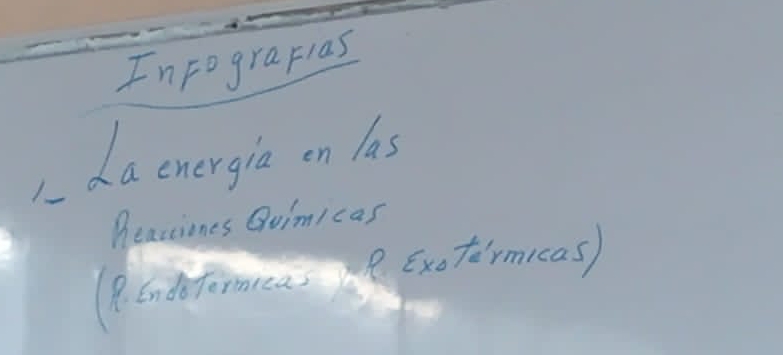 Infografias
1- La energía en las
Reacciones Químicas
(R. Endotermicas y R. Exotérmicas)